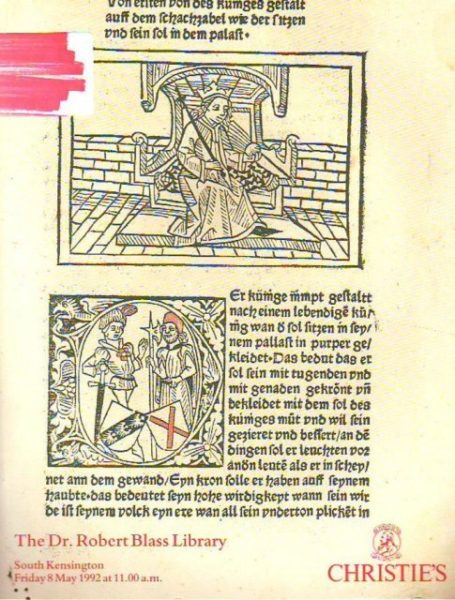 Von ersten von des künigs gestalt
auff dem schachzabel wie der sitzen
vnd sein sol in dem palast.
Er künige nympt gestaltt
nach einem lebendigē kü/
nig wan d̄ sol sitzen in sey/
nem pallast in purper ge/
kleidet. Das bedut das er
sol sein mit tugenden vnd
mit genaden gekrönt vn̄
bekleidet mit dem sol des
küniges můt vnd wil sein
gezieret vnd bessert/an dē
dingen sol er leuchten vor
andn̄ leutē als er in schey/
net ann dem gewand/Eyn kron solle er haben auff seynem
haubte.das bedeutet seyn hohe wirdigkeyt wann sein wir
de ist seynem volck eyn ere wan all sein vnderton plickēt in
The Dr. Robert Blass Library
South Kensington
Friday 8 May 1992 at 11.00 a.m.
CHRISTIE'S